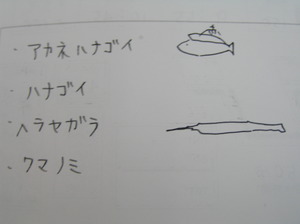 ・アカネハナゴイ
・ハナゴイ
・ヘラヤガラ
・クマノミ